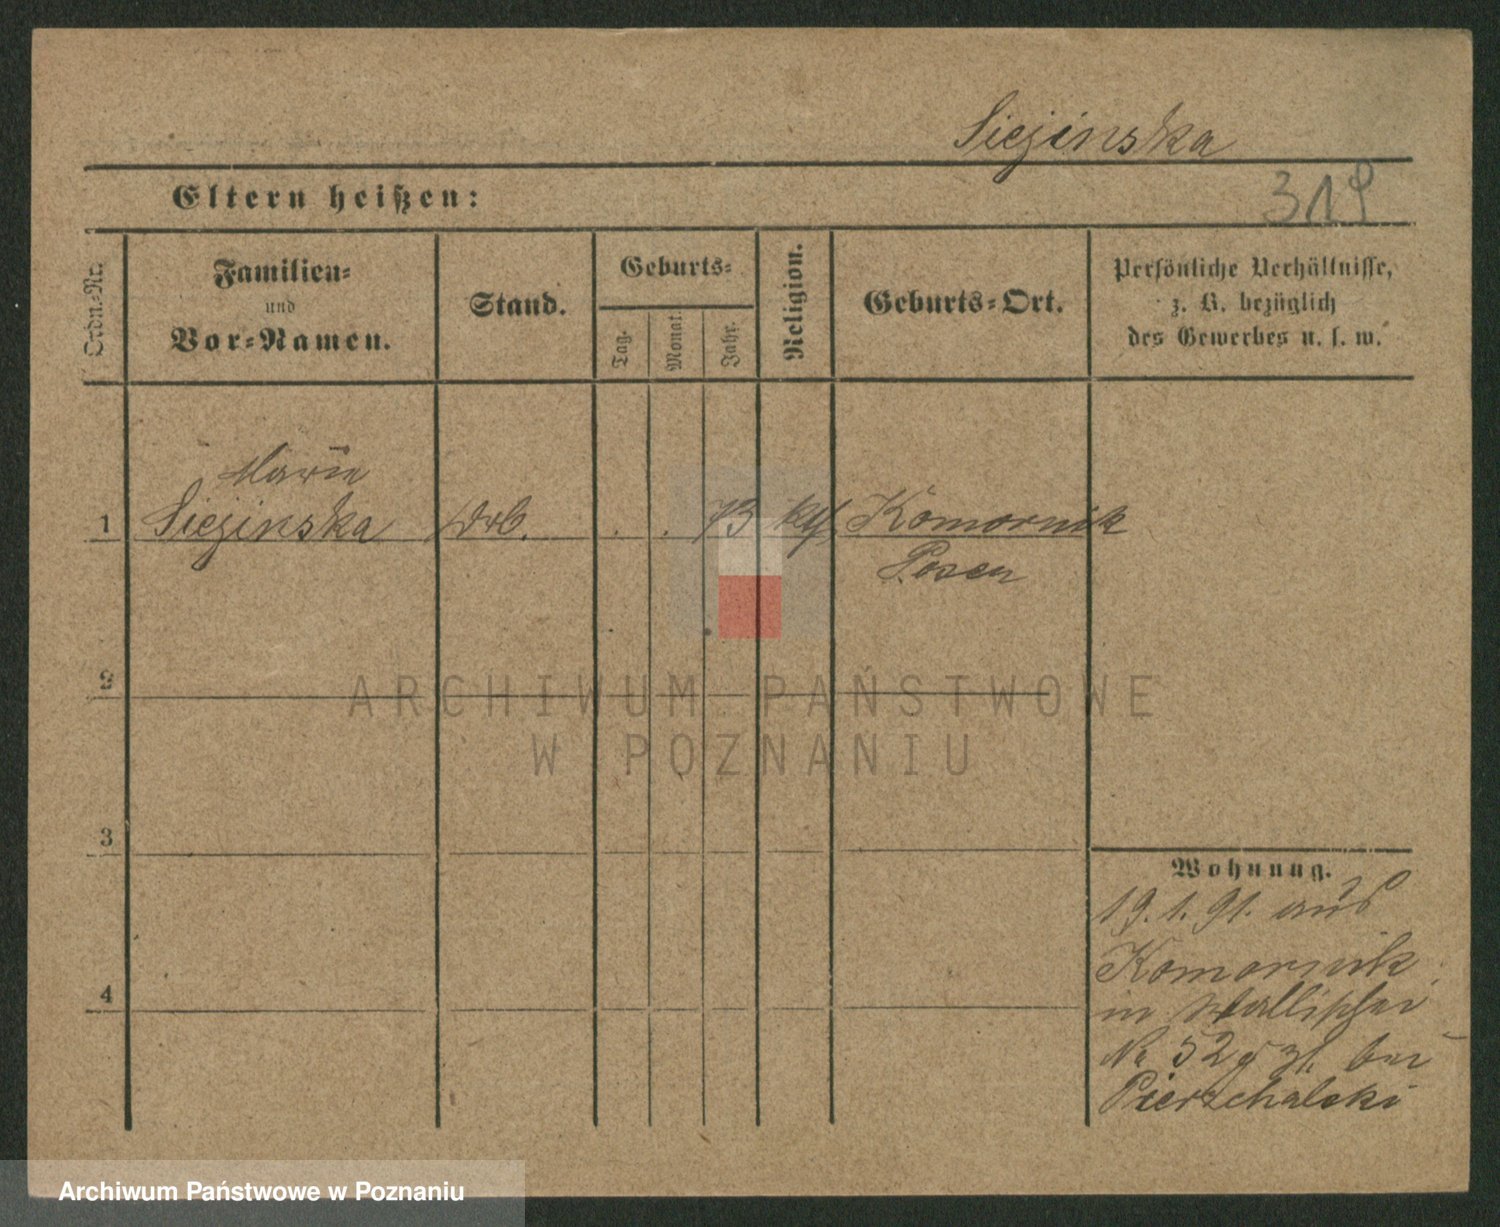 Siejinska
Eltern heißen:
319
Ordn.-Nr.
Familien-
und
Vor-Namen.
Stand.
Geburts-
Tag.
Monat.
Jahr.
Religion.
Geburts-Ort.
Persönliche Verhältnisse,
z. B. bezüglich
des Gewerbes u. s. w.
Marie
1 Siejinska . . 73 kth. Komornik
Posen
2
3
4
Wohnung.
19.1.91. aus
Komornik
in Wallischei
No 52 bei
Pierzchalski
ARCHIWUM PAŃSTWOWE
W POZNANIU
Archiwum Państwowe w Poznaniu